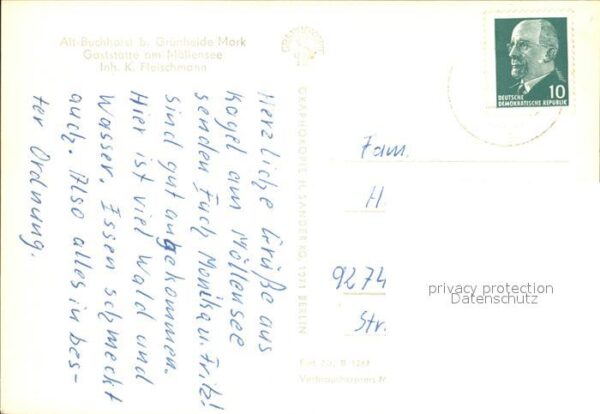 Alt-Buchhorst b. Grünheide Mark
Gaststätte am Möllensee
Inh. K. Fleischmann
Herzliche Grüße aus
Kagel am Möllensee
senden Euch Monika u. Fritz!
Sind gut angekommen.
Hier ist viel Wald und
Wasser. Essen schmeckt
auch. Also alles in bes-
ter Ordnung.
GRAPHOKOPIE H. SANDER KG, 1071 BERLIN
10
DEUTSCHE
DEMOKRATISCHE REPUBLIK
Fam.
H
9274
Str.
privacy protection
Datenschutz
Verbraucherpreis